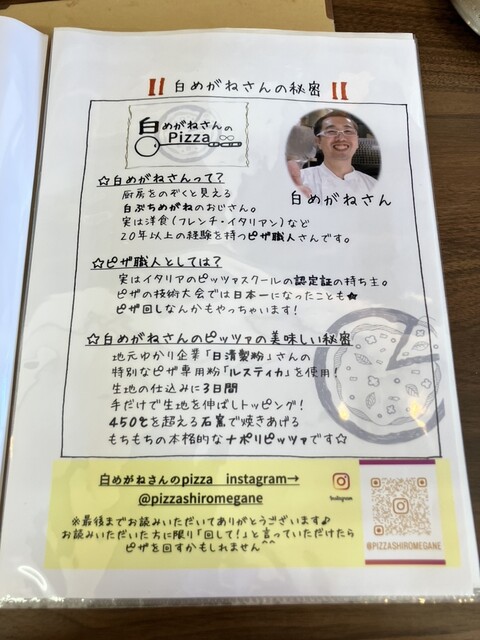 白めがねさんの秘密
白めがねさんの
Pizza
白めがねさん
☆白めがねさんって?
厨房をのぞくと見える
白ぶちめがねのおじさん。
実は洋食(フレンチ・イタリアン)など
20年以上の経験を持つピザ職人さんです。
☆ピザ職人としては?
実はイタリアのピッツァスクールの認定証の持ち主。
ピザの技術大会では日本一になったことも★
ピザ回しなんかもやっちゃいます!
☆白めがねさんのピッツァの美味しい秘密
地元ゆかり企業「日清製粉」さんの
特別なピザ専用粉「ルスティカ」を使用!
生地の仕込みに3日間
手だけで生地を伸ばしトッピング!
450℃を超える石窯で焼きあげる
もちもちの本格的なナポリピッツァです☆
白めがねさんのpizza instagram→
@pizzashiromegane
Instagram
@PIZZASHIROMEGANE
※最後までお読みいただいてありがとうございます♪
お読みいただいた方に限り「回して!」と言っていただけたら
ピザを回すかもしれません^^